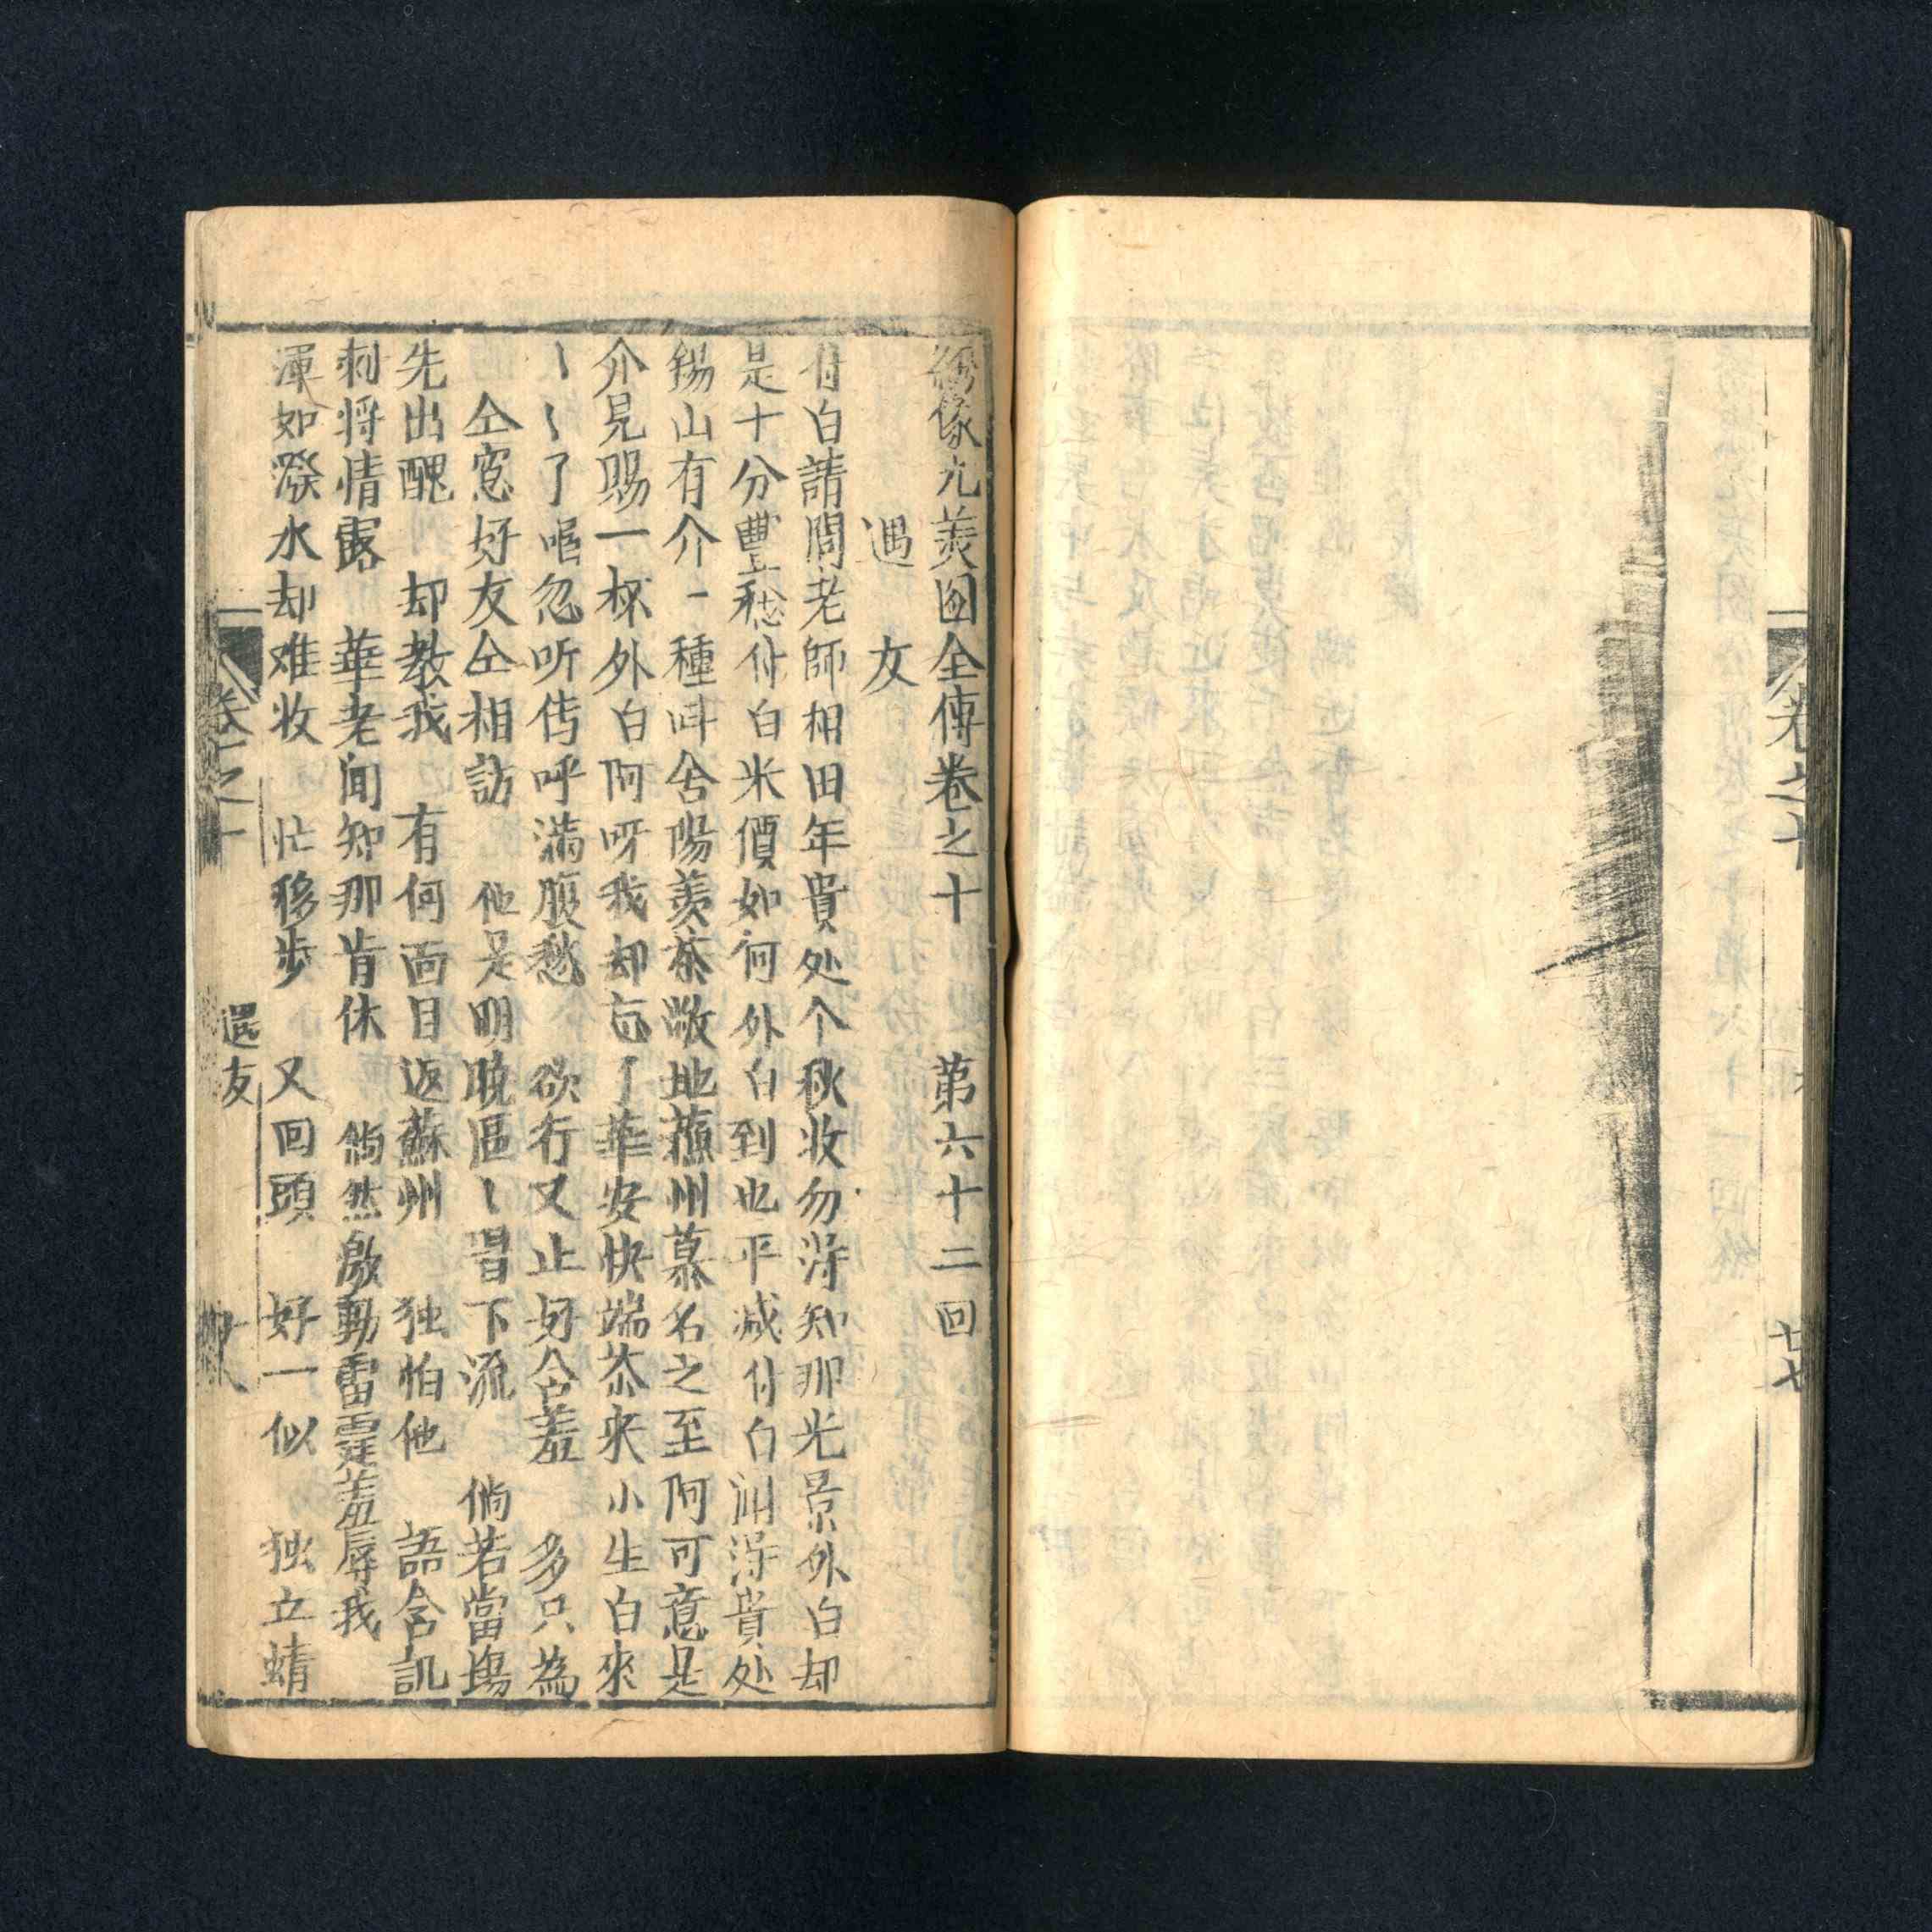 卷之十
廿七
綉像九美图全傳卷之十　第六十二回
遇友
付白請問老師相田年貴处个秋收勿淂知那光景外白却
是十分豐稔付白米價如何外白到也平减付白淂貴处
錫山有介一種呌舍陽羨茶敞地蘓州慕名之至阿可意是
介見賜一杯外白阿呀我却忘了華安快端茶来小生白來
〻〻了唱忽听传呼满腹愁　欲行又止好含羞　多只為
仝窓好友仝相訪　他是明晚區〻唱下流　倘若當塲
先出醜　却教我　有何面目返蘇州　独怕他　語含訊
刺将情露　華老闻知那肯休　倘然激動雷霆羞辱我
渾如潑水却难收　忙移步　又回頭　好一似　独立蜻
卷之十
遇友